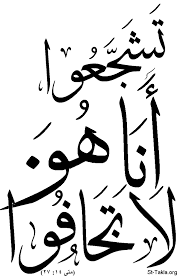 تَشَجَّعُوا
أَنَا هُوَ
لَا تَخَافُوا
(متى ١٤: ٢٧)
St-Takla.org